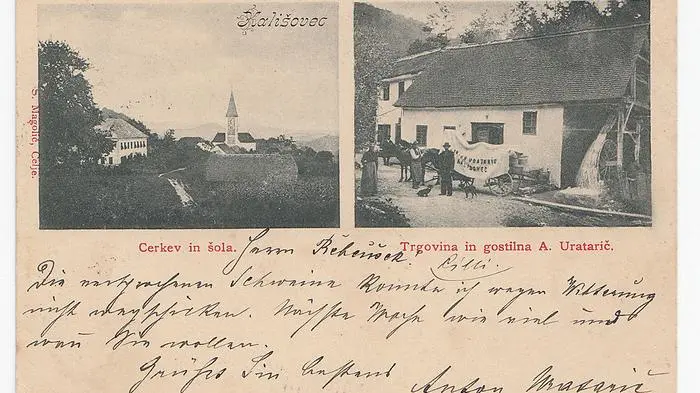 Kališovec
S. Magolič, Celje.
A. URATARIČ
Cerkev in šola.
Trgovina in gostilna A. Uratarič.
Herrn Řehoušek
Cilli
Die versprochenen Schweine konnte ich wegen Witterung
nicht wegschicken. Nächste Woche wie viel und
wan Sie wollen.
Grüße Sie bestens
Anton Uratarič